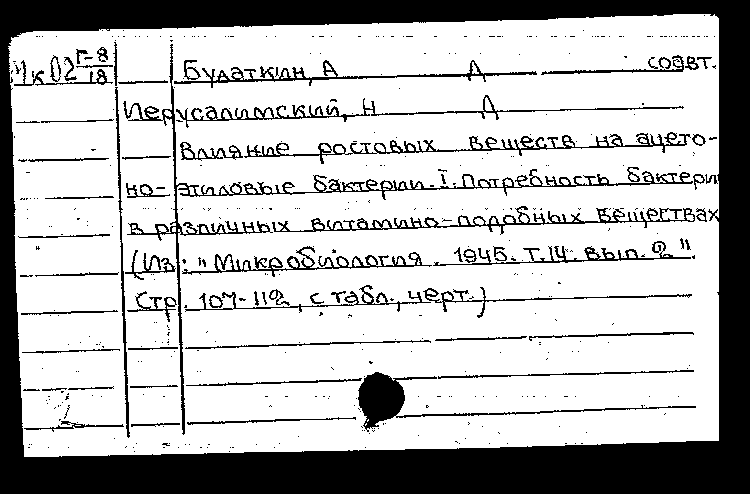 Мк02 Г-8/18 Будаткин, А Д соавт.
Иерусалимский, Н Д
Влияние ростовых веществ на ацето-
но-этиловые бактерии. I. Потребность бактерии
в различных витамино-подобных веществах
(Из: "Микробиология. 1945. Т.14. вып. 2".
Стр. 107-112, с табл., черт.)
2